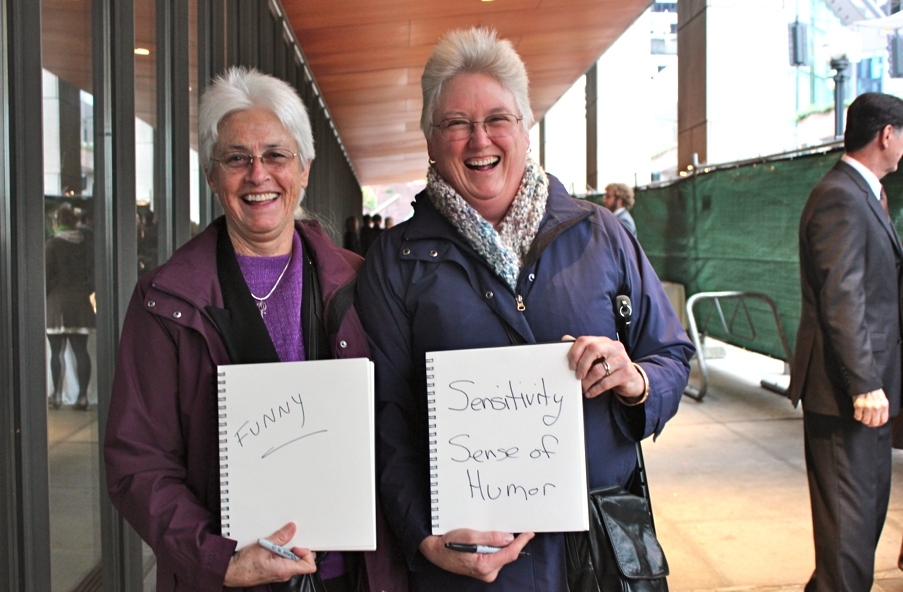 FUNNY
Sensitivity
Sense of
Humor